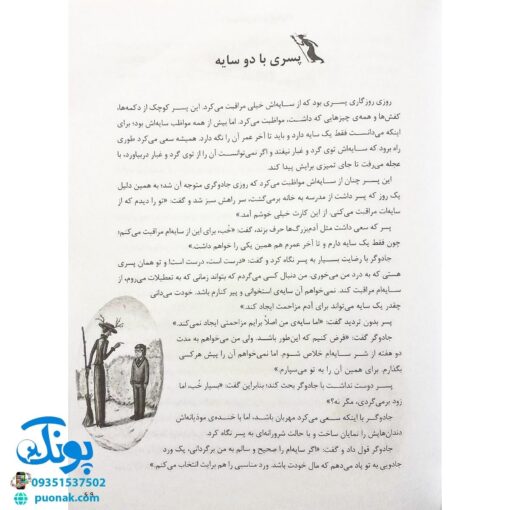 پسری با دو سایه
روزی روزگاری پسری بود که از سایه‌اش خیلی مراقبت می‌کرد. این پسر کوچک از دکمه‌ها،
کفش‌ها و همه‌ی چیزهایی که داشت، مواظبت می‌کرد. اما بیش از همه مواظب سایه‌اش بود؛ برای
اینکه می‌دانست فقط یک سایه دارد و باید تا آخر عمر آن را نگه دارد. همیشه سعی می‌کرد طوری
راه برود که سایه‌اش توی گرد و غبار نیفتد و اگر نمی‌توانست آن را از توی گرد و غبار دربیاورد، با
عجله می‌رفت تا جای تمیزی برایش پیدا کند.
این پسر چنان از سایه‌اش مواظبت می‌کرد که روزی جادوگری متوجه آن شد؛ به همین دلیل
یک روز که پسر داشت از مدرسه به خانه برمی‌گشت، سر راهش سبز شد و گفت: «تو را دیدم که از
سایه‌ات مراقبت می‌کنی. از این کارت خیلی خوشم آمد.»
پسر که سعی داشت مثل آدم‌بزرگ‌ها حرف بزند، گفت: «خُب، برای این از سایه‌ام مراقبت می‌کنم؛
چون فقط یک سایه دارم و تا آخر عمرم هم همین یکی را خواهم داشت.»
جادوگر با رضایت بسیار به پسر نگاه کرد و گفت: «درست است، درست است! و تو همان پسری
هستی که به درد من می‌خوری. من دنبال کسی می‌گردم که بتواند زمانی که به تعطیلات می‌روم، از
سایه‌ام مراقبت کند. نمی‌خواهم آن سایه‌ی استخوانی و پیر کنارم باشد. خودت می‌دانی
چقدر یک سایه می‌تواند برای آدم مزاحمت ایجاد کند.»
پسر بدون تردید گفت: «اما سایه‌ی من اصلاً برایم مزاحمتی ایجاد نمی‌کند.»
جادوگر گفت: «فرض کنیم که این‌طور باشد. ولی من می‌خواهم به مدت
دو هفته از شر سایه‌ام خلاص شوم. اما نمی‌خواهم آن را پیش هرکسی
بگذارم. برای همین آن را به تو می‌سپارم.»
پسر دوست نداشت با جادوگر بحث کند؛ بنابراین گفت: «بسیار خُب، اما
زود برمی‌گردی، مگر نه؟»
جادوگر با اینکه سعی می‌کرد مهربان باشد، اما با خنده‌ی موذیانه‌اش
دندان‌هایش را نمایان ساخت و با حالت شرورانه‌ای به پسر نگاه کرد.
جادوگر قول داد و گفت: «اگر سایه‌ام را صحیح و سالم به من برگردانی، یک ورد
جادویی به تو یاد می‌دهم که مال خودت باشد. ورد مناسبی را هم برایت انتخاب می‌کنم.»
۶۹
پونک
09351537502
puonak.com